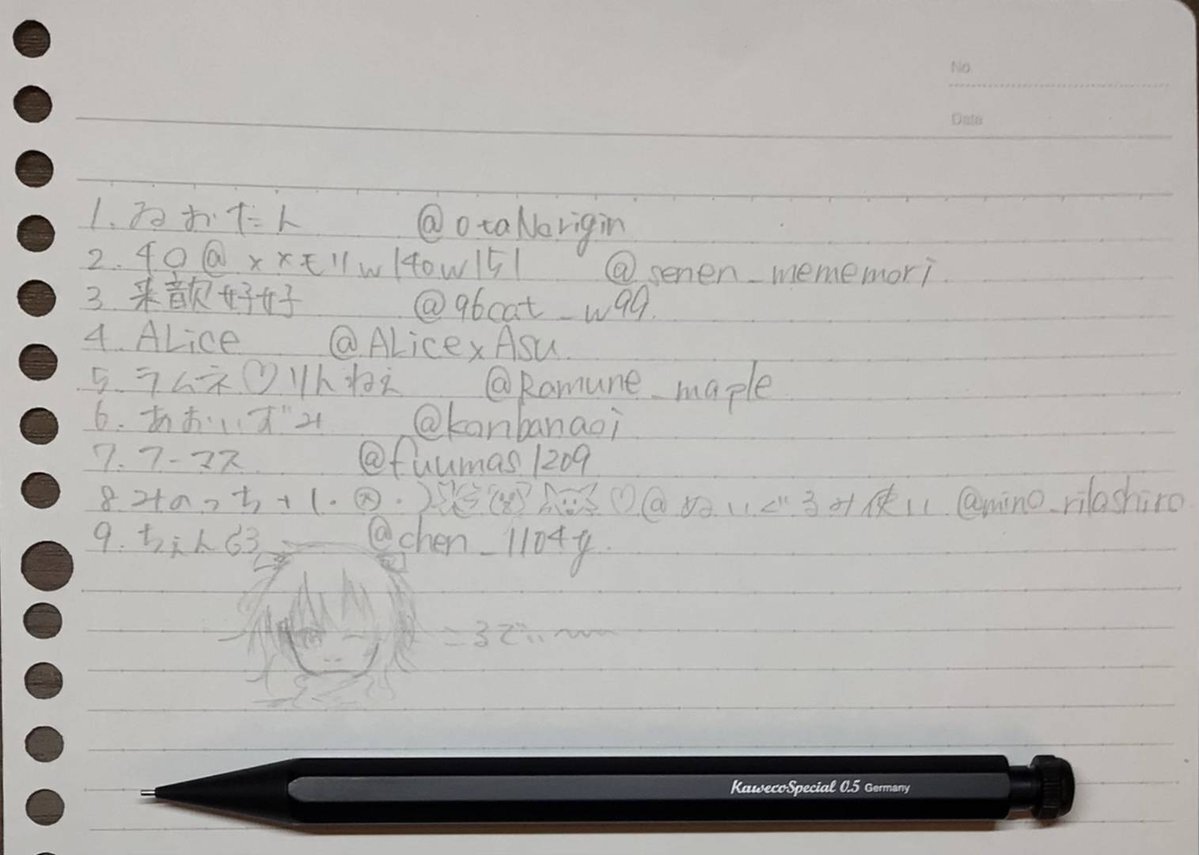 No.
Date
1. ゐおだん @otaNarigin
2. 40@××モリw140w151 @senen_mememori
3. 来歆好好 @96cat_w99
4. ALice @ALicexAsu
5. ラムネ♡りんねぇ @Ramune_maple
6. あおいずみ @kanbanaoi
7. フーマス @fuumas1209
8. みのっち+ ♡@ぬいぐるみ使い @mino_rilashiro
9. ちぇん63 @chen_1104g
KawecoSpecial 0.5 Germany